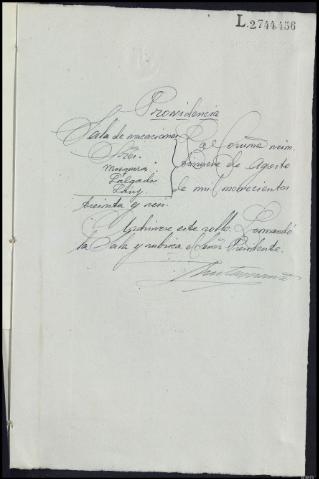 L.2744.456
Providencia
Sala de vacaciones
Sres.
Mosquera
Salgado
La Coruña
de Agosto
de mil novecientos
treinta y seis.
Archívese este rollo. Lo mandó
la Sala y rubrica el Señor Presidente.